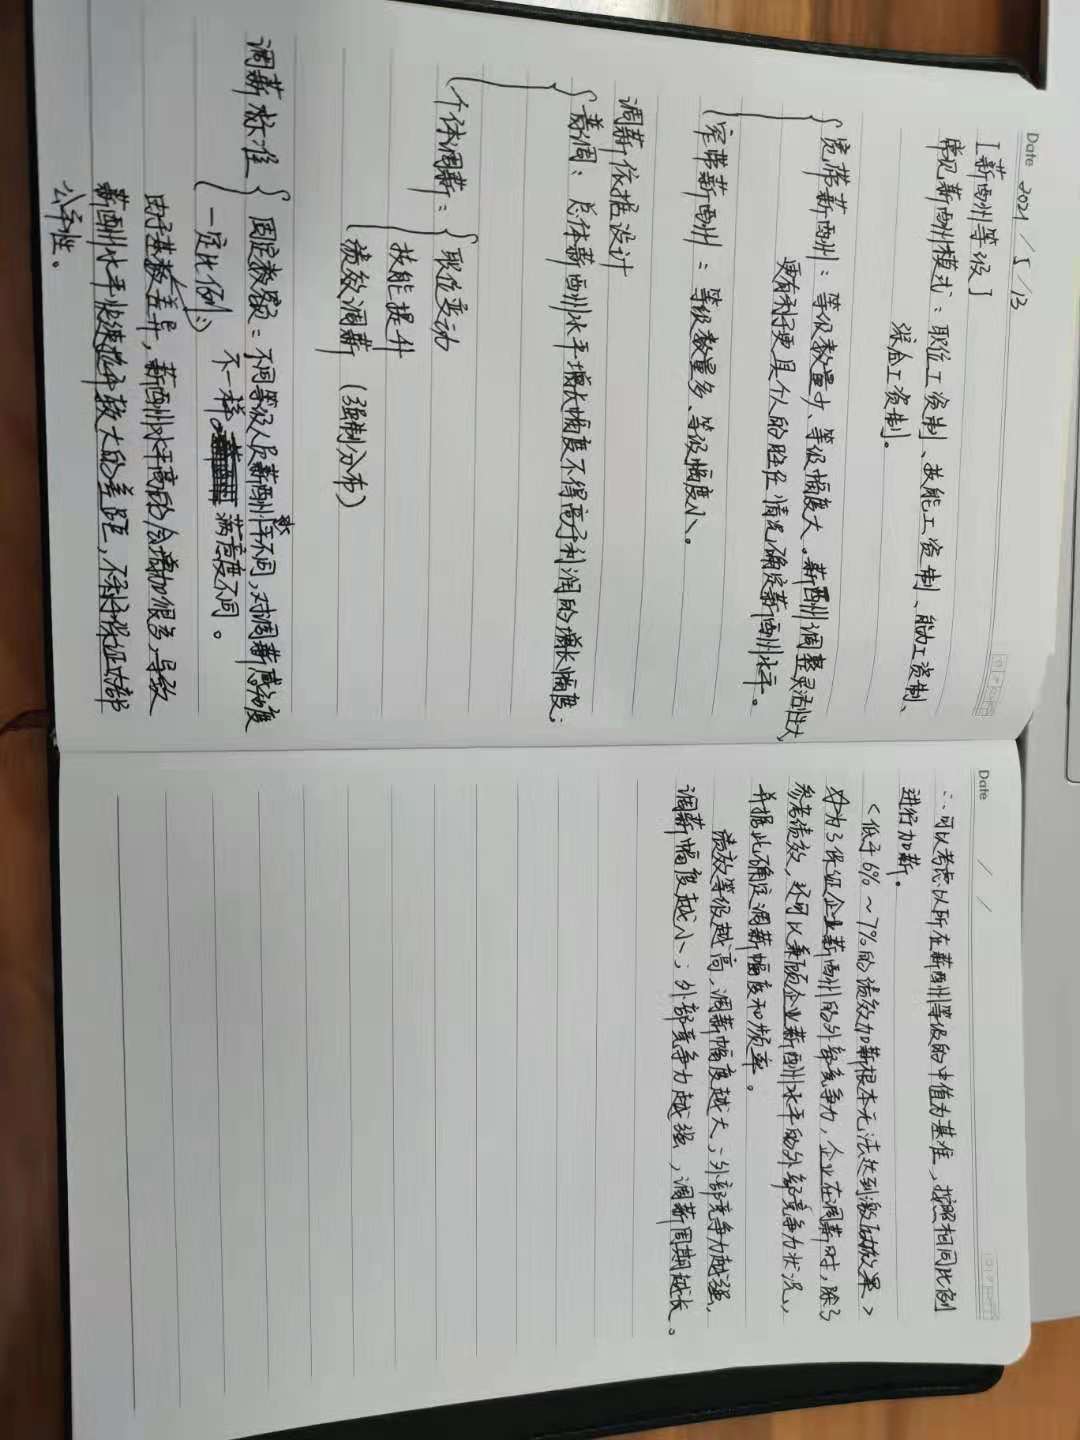 Date 2021 / 5 / 13
[薪酬等级]
常见薪酬模式：职位工资制、技能工资制、能力工资制、
综合工资制。
宽带薪酬：等级数量少、等级幅度大。薪酬调整灵活性大,
更有利于更具个人的胜任情况确定薪酬水平。
窄带薪酬：等级数量多、等级幅度小。
调薪依据设计
普调：总体薪酬水平增长幅度不得高于利润的增长幅度；
个体调薪：职位变动
技能提升
绩效调薪（强制分布）
调薪标准 固定数额：不同等级人员薪酬水平不同，对调薪敏感度
不一样。满意度不同。
一定比例：
由于基数差异，薪酬水平高的会增加很多，导致
薪酬水平快速拉开较大的差距，不利于保证内部
公平性。
Date / /
∴可以考虑以所在薪酬等级的中值为基准，按照相同比例
进行加薪。
<低于6%~7%的绩效加薪根本无法达到激励效果>
为了保证企业薪酬的外部竞争力，企业在调薪时，除了
参考绩效，还可以兼顾企业薪酬水平的外部竞争力状况，
并据此确定调薪幅度和频率。
绩效等级越高，调薪幅度越大；外部竞争力越强，
调薪幅度越小；外部竞争力越强，调薪周期越长。